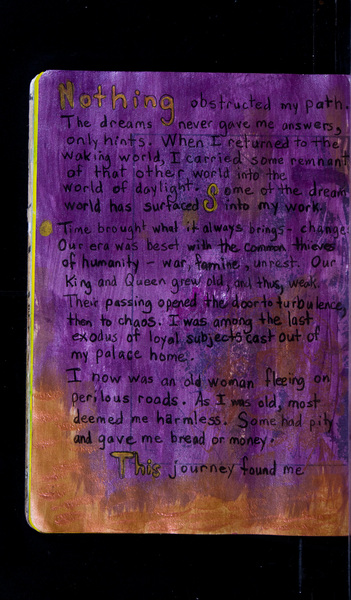 Nothing obstructed my path.
The dreams never gave me answers,
only hints. When I returned to the
waking world, I carried some remnant
of that other world into the
world of daylight. Some of the dream
world has surfaced into my work.
Time brought what it always brings - change.
Our era was beset with the common thieves
of humanity - war, famine, unrest. Our
King and Queen grew old, and thus, weak.
Their passing opened the door to turbulence,
then to chaos. I was among the last
exodus of loyal subjects cast out of
my palace home.
I now was an old woman fleeing on
perilous roads. As I was old, most
deemed me harmless. Some had pity
and gave me bread or money.
This journey found me